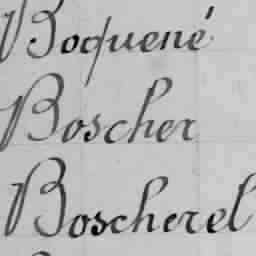 Boquené
Boscher
Boscherel